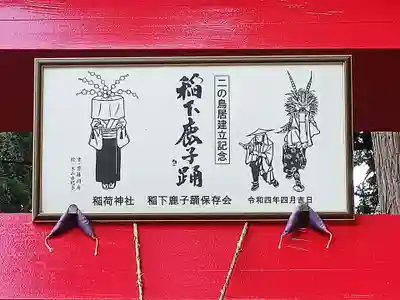 二の鳥居建立記念
稲下鹿子踊
稲荷神社 稲下鹿子踊保存会 令和四年四月吉日